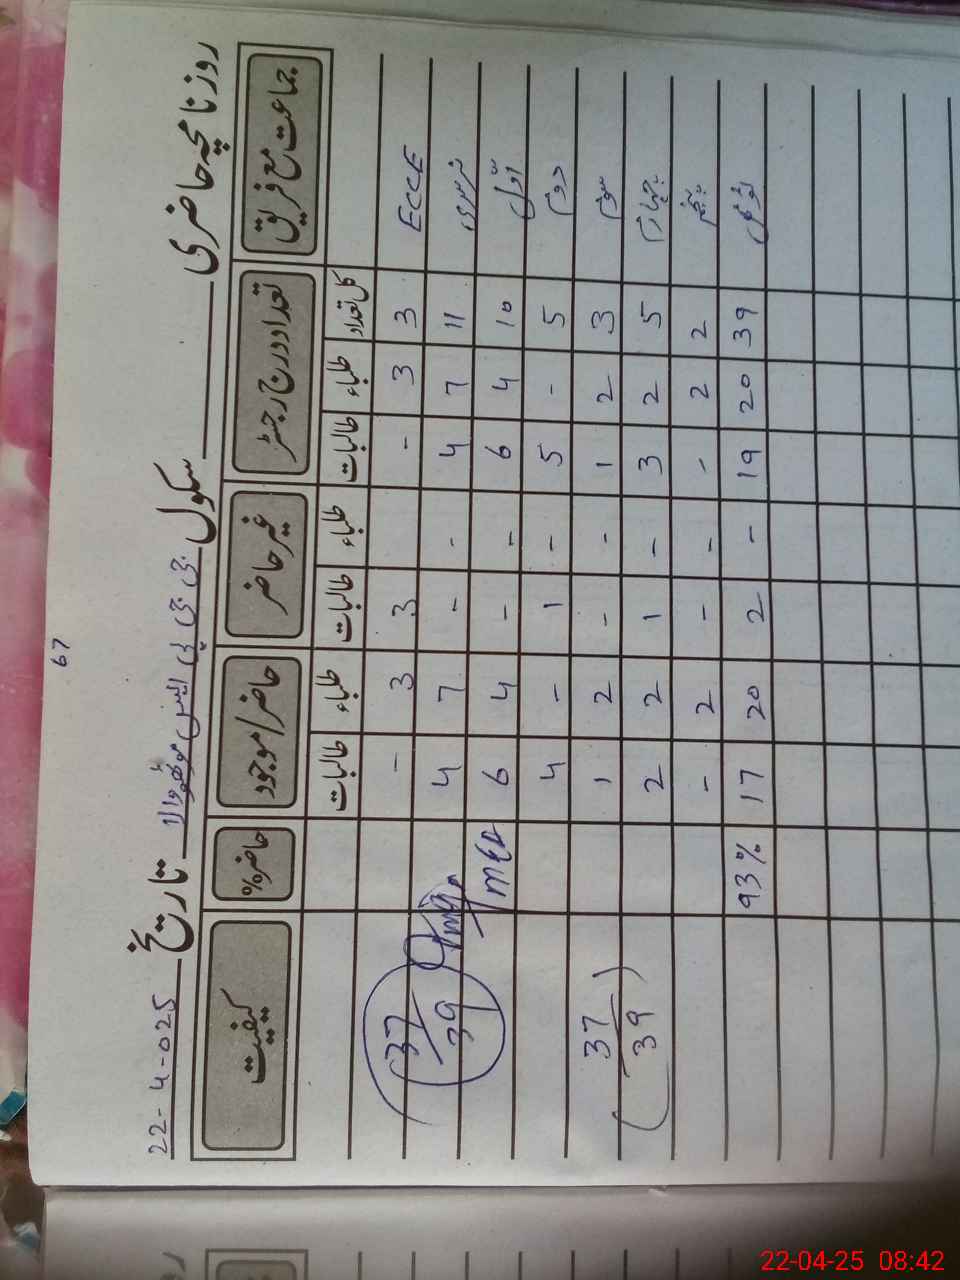 67
روزنامچہ حاضری سکول جی جی پی ایس موٹھوالا تاریخ 22-4-025
جماعت مع فریق تعداد درج رجسٹر غیر حاضر حاضر/موجود حاضر% کیفیت
کل تعداد طلباء طالبات طلباء طالبات طلباء طالبات
ECCE 3 3 - 3 3 -
نرسری 11 7 4 - - 7 4
اول 10 4 6 - - 4 6
دوم 5 - 5 - 1 - 4
سوم 3 2 1 - - 2 1
چہارم 5 2 3 - 1 2 2
پنجم 2 2 - - - 2 -
ٹوٹل 39 20 19 - 2 20 17 93%
37/39
(37/39)
22-04-25 08:42